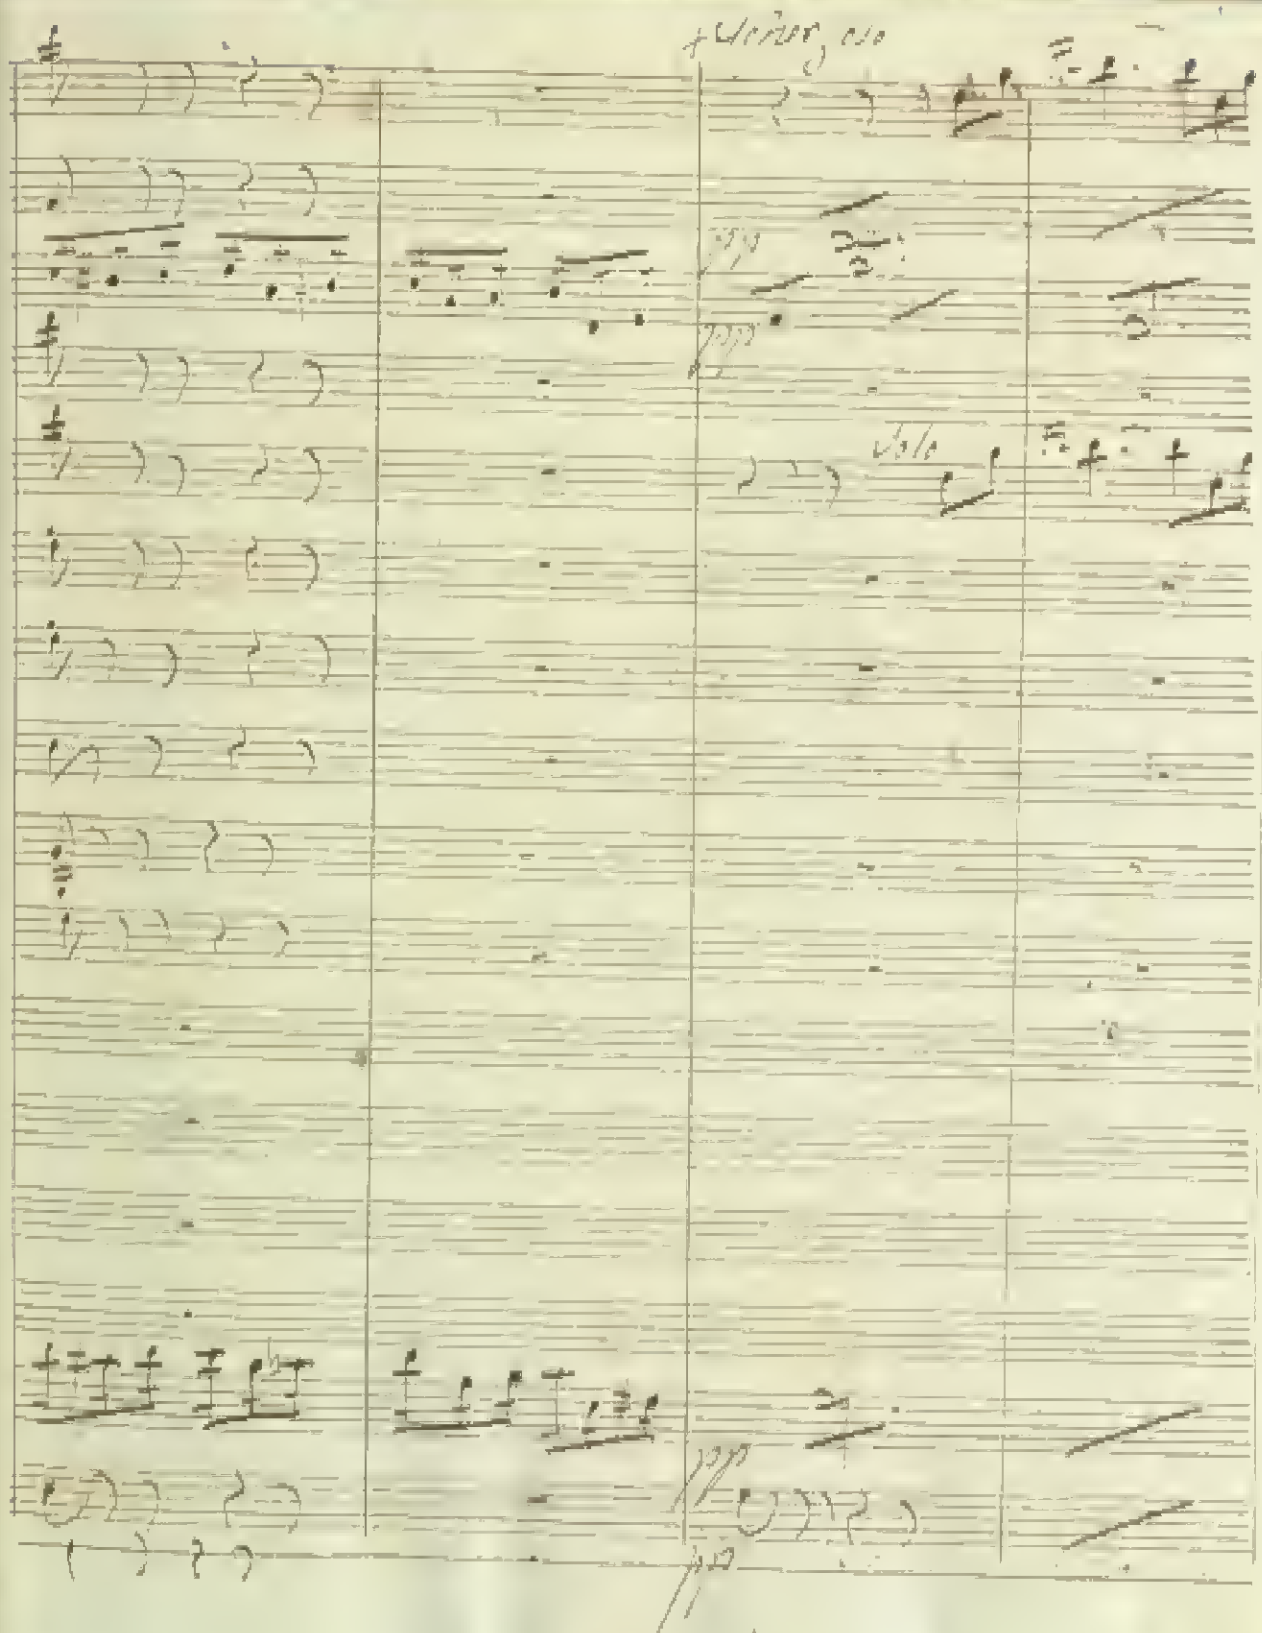 ppp
ppp
Solo
ppp
ppp